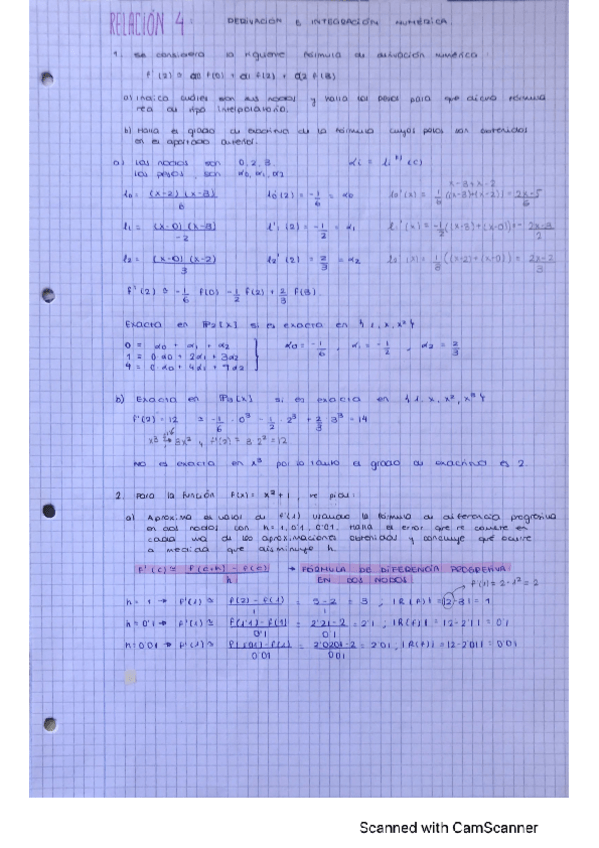 RELACIÓN 4: DERIVACIÓN E INTEGRACIÓN NUMÉRICA.
1. Se considera la siguiente fórmula de derivación numérica:
f'(2) ≈ α0 f(0) + α1 f(2) + α2 f(3)
a) Indica cuáles son sus nodos y halla los pesos para que dicha fórmula
sea de tipo interpolatorio.
b) Halla el grado de exactitud de la fórmula cuyos pesos son obtenidos
en el apartado anterior.
a) Los nodos son 0, 2, 3 αi = li'(c)
Los pesos son α0, α1, α2
l0 = (x-2)(x-3) / 6 l0'(2) = -1/6 = α0 l0'(x) = 1/6 ((x-3)+(x-2)) = 2x-5 / 6
l1 = (x-0)(x-3) / -2 l1'(2) = -1/2 = α1 l1'(x) = -1/2 ((x-3)+(x-0)) = - 2x-3 / 2
l2 = (x-0)(x-2) / 3 l2'(2) = 2/3 = α2 l2'(x) = 1/3 ((x-2)+(x-0)) = 2x-2 / 3
f'(2) ≈ -1/6 f(0) - 1/2 f(2) + 2/3 f(3).
Exacta en P2[x] si es exacta en {1, x, x²}
0 = α0 + α1 + α2
1 = 0α0 + 2α1 + 3α2 α0 = -1/6, α1 = -1/2, α2 = 2/3
4 = 0α0 + 4α1 + 9α2
b) Exacta en P3[x] si es exacta en {1, x, x², x³}
f'(2) = 12 ≈ -1/6 · 0³ - 1/2 · 2³ + 2/3 · 3³ = 14
x³ → 3x², f'(2) = 3·2² = 12
No es exacta en x³ por lo tanto el grado de exactitud es 2.
2. Para la función f(x) = x²+1, se pide:
a) Aproxima el valor de f'(1) usando la fórmula de diferencia progresiva
en dos nodos con h = 1, 0'1, 0'01. Halla el error que se comete en
cada una de las aproximaciones obtenidas y concluye qué ocurre
a medida que disminuye h.
f'(c) ≈ f(c+h) - f(c) / h → FÓRMULA DE DIFERENCIA PROGRESIVA
EN DOS NODOS
f'(1) = 2·1² = 2
h = 1 → f'(1) ≈ f(2) - f(1) / 1 = 5-2 / 1 = 3, |R(f)| = |2-3| = 1
h = 0'1 → f'(1) ≈ f(1'1) - f(1) / 0'1 = 2'21-2 / 0'1 = 2'1, |R(f)| = |2-2'1| = 0'1
h = 0'01 → f'(1) ≈ f(1'01) - f(1) / 0'01 = 2'0201-2 / 0'01 = 2'01, |R(f)| = |2-2'01| = 0'01
Scanned with CamScanner